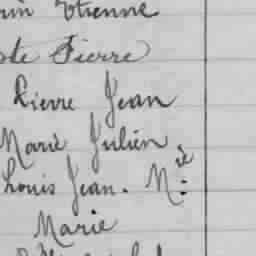 Etienne
Pierre
Pierre Jean
Marie Julien
Louis Jean. M.ie
Marie